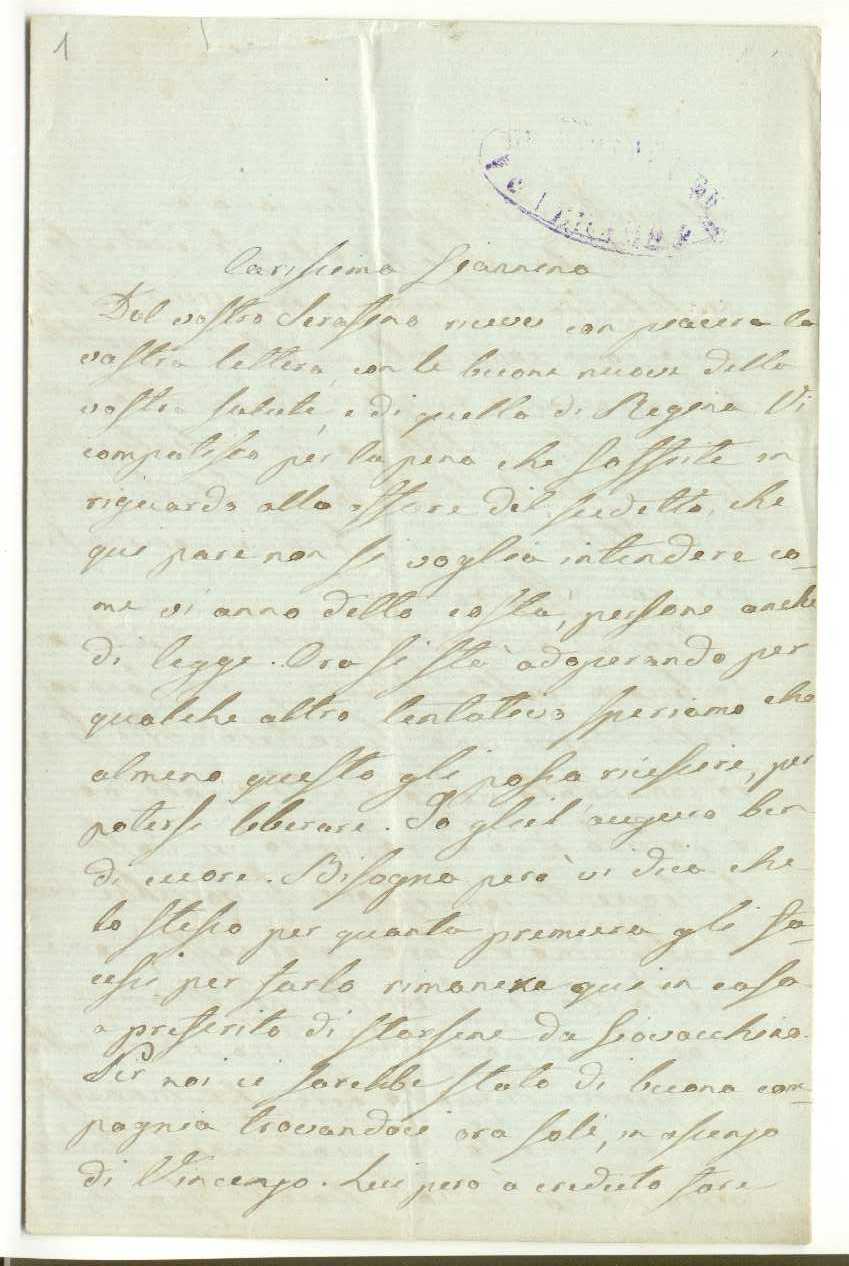 1
Carissima Giannina
Dal vostro Serafino ricevei con piacere la
vostra lettera, con le buone nuove della
vostra salute, e di quella di Regina Vi
compatisco per la pena che soffrite in
riguardo allo affare del sudetto, che
qui pare non si voglia intendere co-
me vi anno detto costà, persone anche
di legge. Ora si stà adoperando per
qualche altro tentativo speriamo che
almeno questo gli possa riescire, per
potersi liberare. Io gliel'auguro ben
di cuore. Bisogna però vi dica che
lo stesso per quanta premura gli fa-
cessi per farlo rimanere qui in casa
a preferito di starsene da Giovacchino.
Per noi ci sarebbe stato di buona com-
pagnia trovandoci ora soli, in assenza
di Vincenzo. Lui però a creduto fare